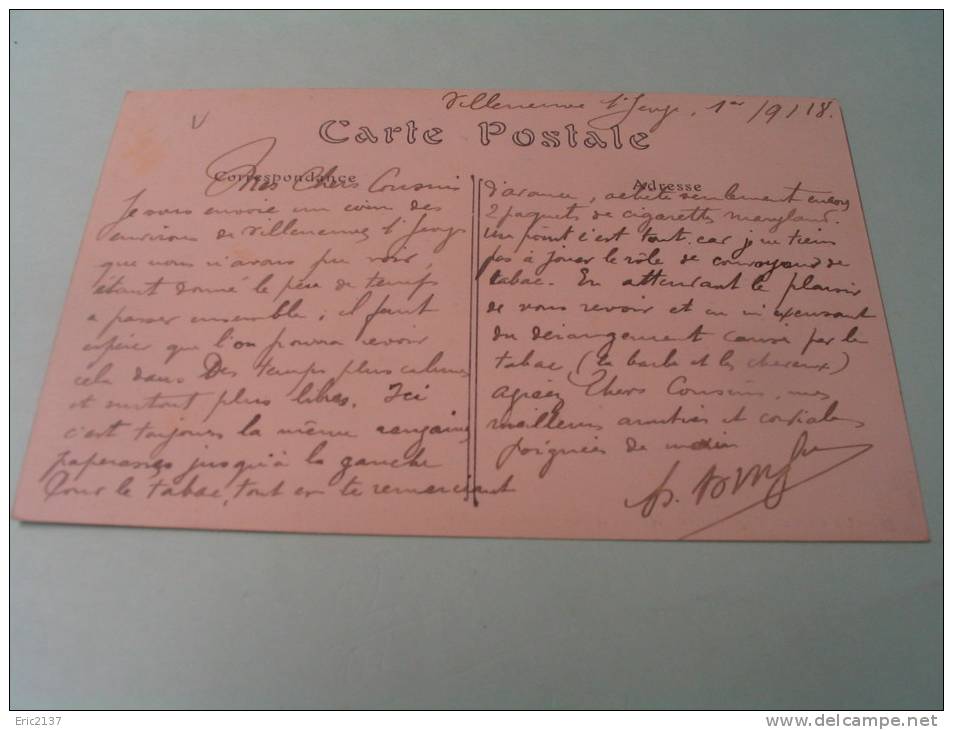 Villeneuve l'Archev. 1er/9/18.
Carte Postale
Correspondance
Adresse
Mes Chers Cousins
Je vous envoie un coin des
environs de Villeneuve
que nous n'avons pu voir,
étant donné le peu de temps
a passer ensemble, il faut
espérer que l'on pourra revoir
cela dans Des temps plus calmes
et surtout plus libres. Ici
c'est toujours la même rengaine
paperasses jusqu'à la gauche
Pour le tabac, tout en te remerciant
d'avance, achète seulement encore
2 paquets de cigarettes maryland.
un point c'est tout, car je ne tiens
pas à jouer le rôle de convoyeur de
tabac. En attendant le plaisir
de vous revoir et en m'excusant
du dérangement causé par le
tabac, (la barbe et les cheveux)
agréez Chers Cousins, mes
meilleures amitiés et cordiales
poignées de main
Eric2137
www.delcampe.net